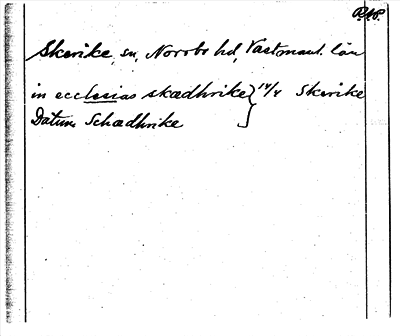 P.N.P.
Skerike, sn, Norrbo hd, Västmanl. län
in ecclesias skædhrike } 14/4 Skerike
Datum Schædhrike